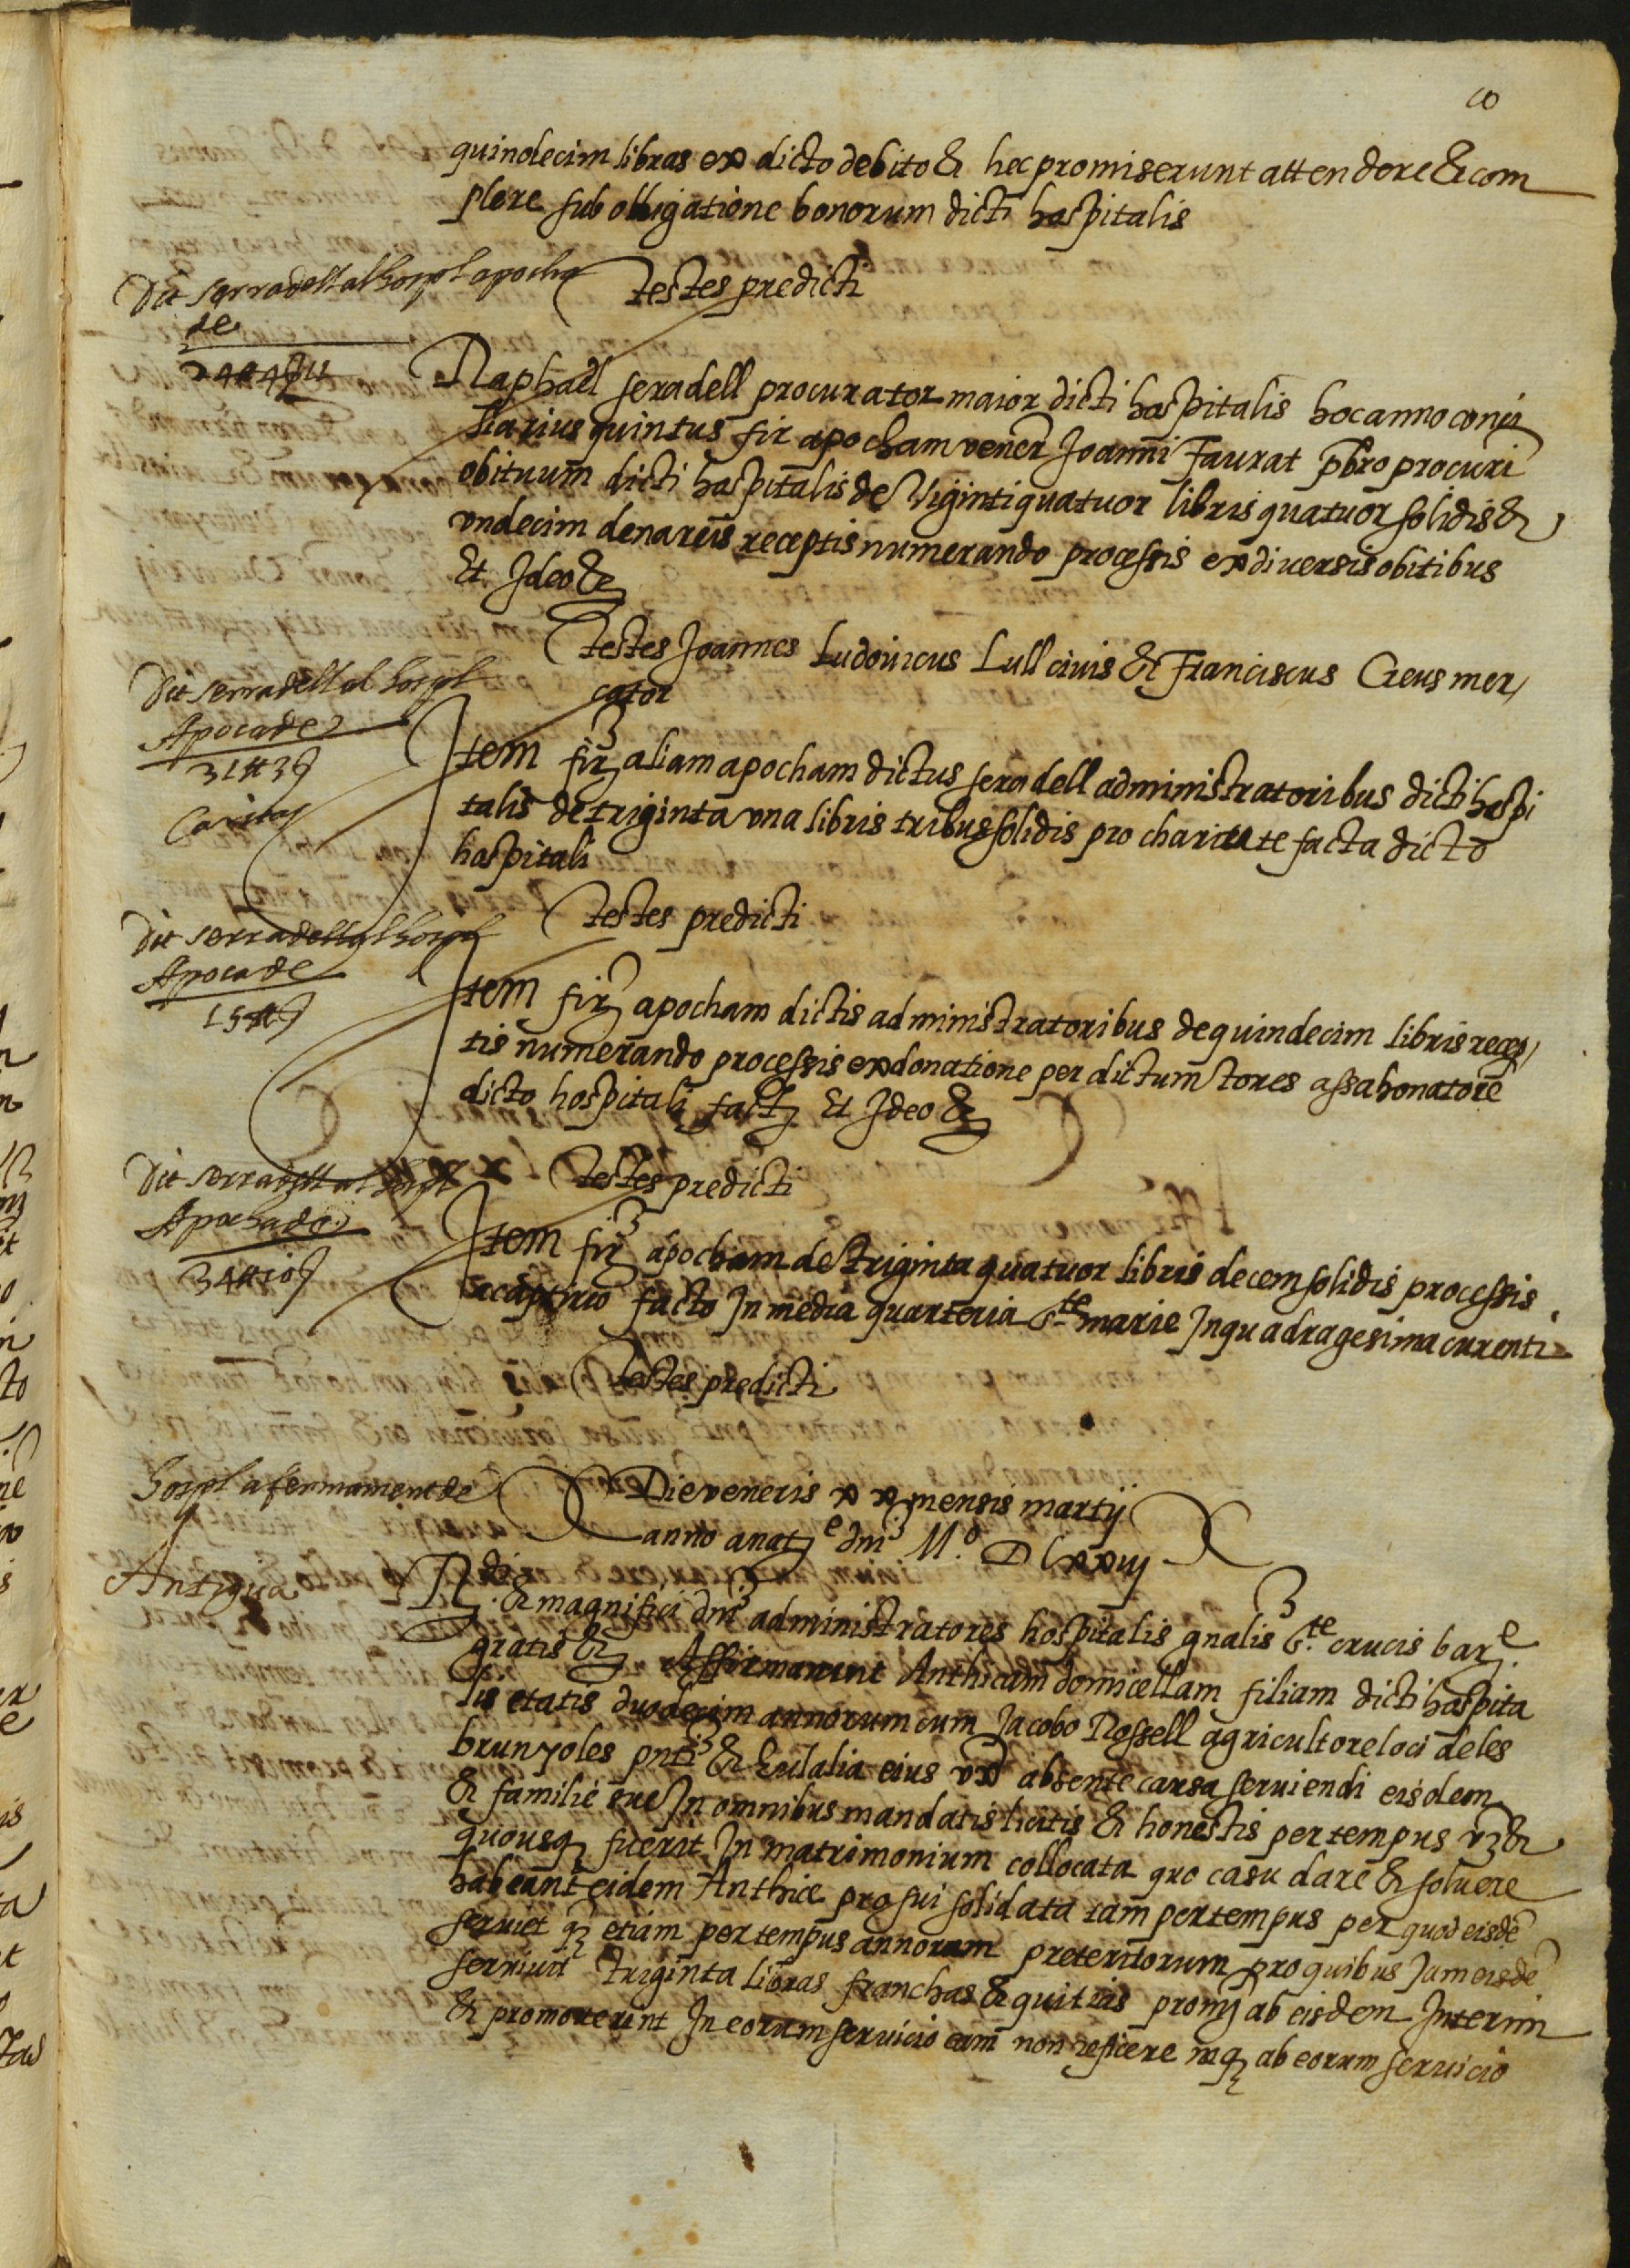 10
quindecim libras ex dicto debito & hec promiserunt attendere & com
plere sub obligatione bonorum dicti hospitalis
testes predicti
Dit serradell al hospl apocha
de
24 ₶ 4 ß 11
Raphael seradell procurator maior dicti hospitalis hoc anno consi
liarius quintus fir apocham vener Joanni Faurat pbro procuri
obituum dicti hospitalis de viginti quatuor libris quatuor solidis &
undecim denariis receptis numerando processis ex diversis obitibus
Et Ideo &
testes Joannes Ludovicus Lull civis & Franciscus Creus mer
cator
Dit serradell al hospl
Apoca de
31 ₶ 3 ß
Caritat
Item fir aliam apocham dictus seradell administratoribus dicti hospi
talis de triginta una libris tribus solidis pro charitate facta dicto
hospitali
testes predicti
Dit serradell al hospl
Apoca de
15 ₶ ß
Item fir apocham dictis administratoribus de quindecim libris recep
tis numerando processis ex donatione per dictum tores assahonatore
dicto hospitali fact Et Ideo &
testes predicti
Dit serradell al hospl
Apocha de
34 ₶ 10 ß
Item fir apocham de triginta quatuor libris decem solidis processis
facto In media quarteria Ste marie In quadragesima curenti
testes predicti
hospl afermament de
Antigua
Die veneris xx mensis martij
anno a nate dni Mo D lxxiij
Rdi & magnifici dni administratores hospitalis gnalis Ste crucis bare
gratis & Affirmarunt Anthicam domicellam filiam dicti hospita
lis etatis duodecim annorum cum Jacobo Rossell agricultore loci de les
brunyoles pnti & Eulalia eius ux absente causa serviendi eisdem
& familie sue In omnibus mandatis licitis & honestis per tempus vz &
quousq fuerit In matrimonium collocata quo casu dare & solvere
habeant eidem Anthice pro sui solidata tam per tempus per quod eisde
serviet q etiam per tempus annorum preteritorum pro quibus Jam eisde
servivit triginta libras franchas & quitias promj ab eisdem Interim
& promoverint In eorum servicio eam non reficere neq ab eorum servicio